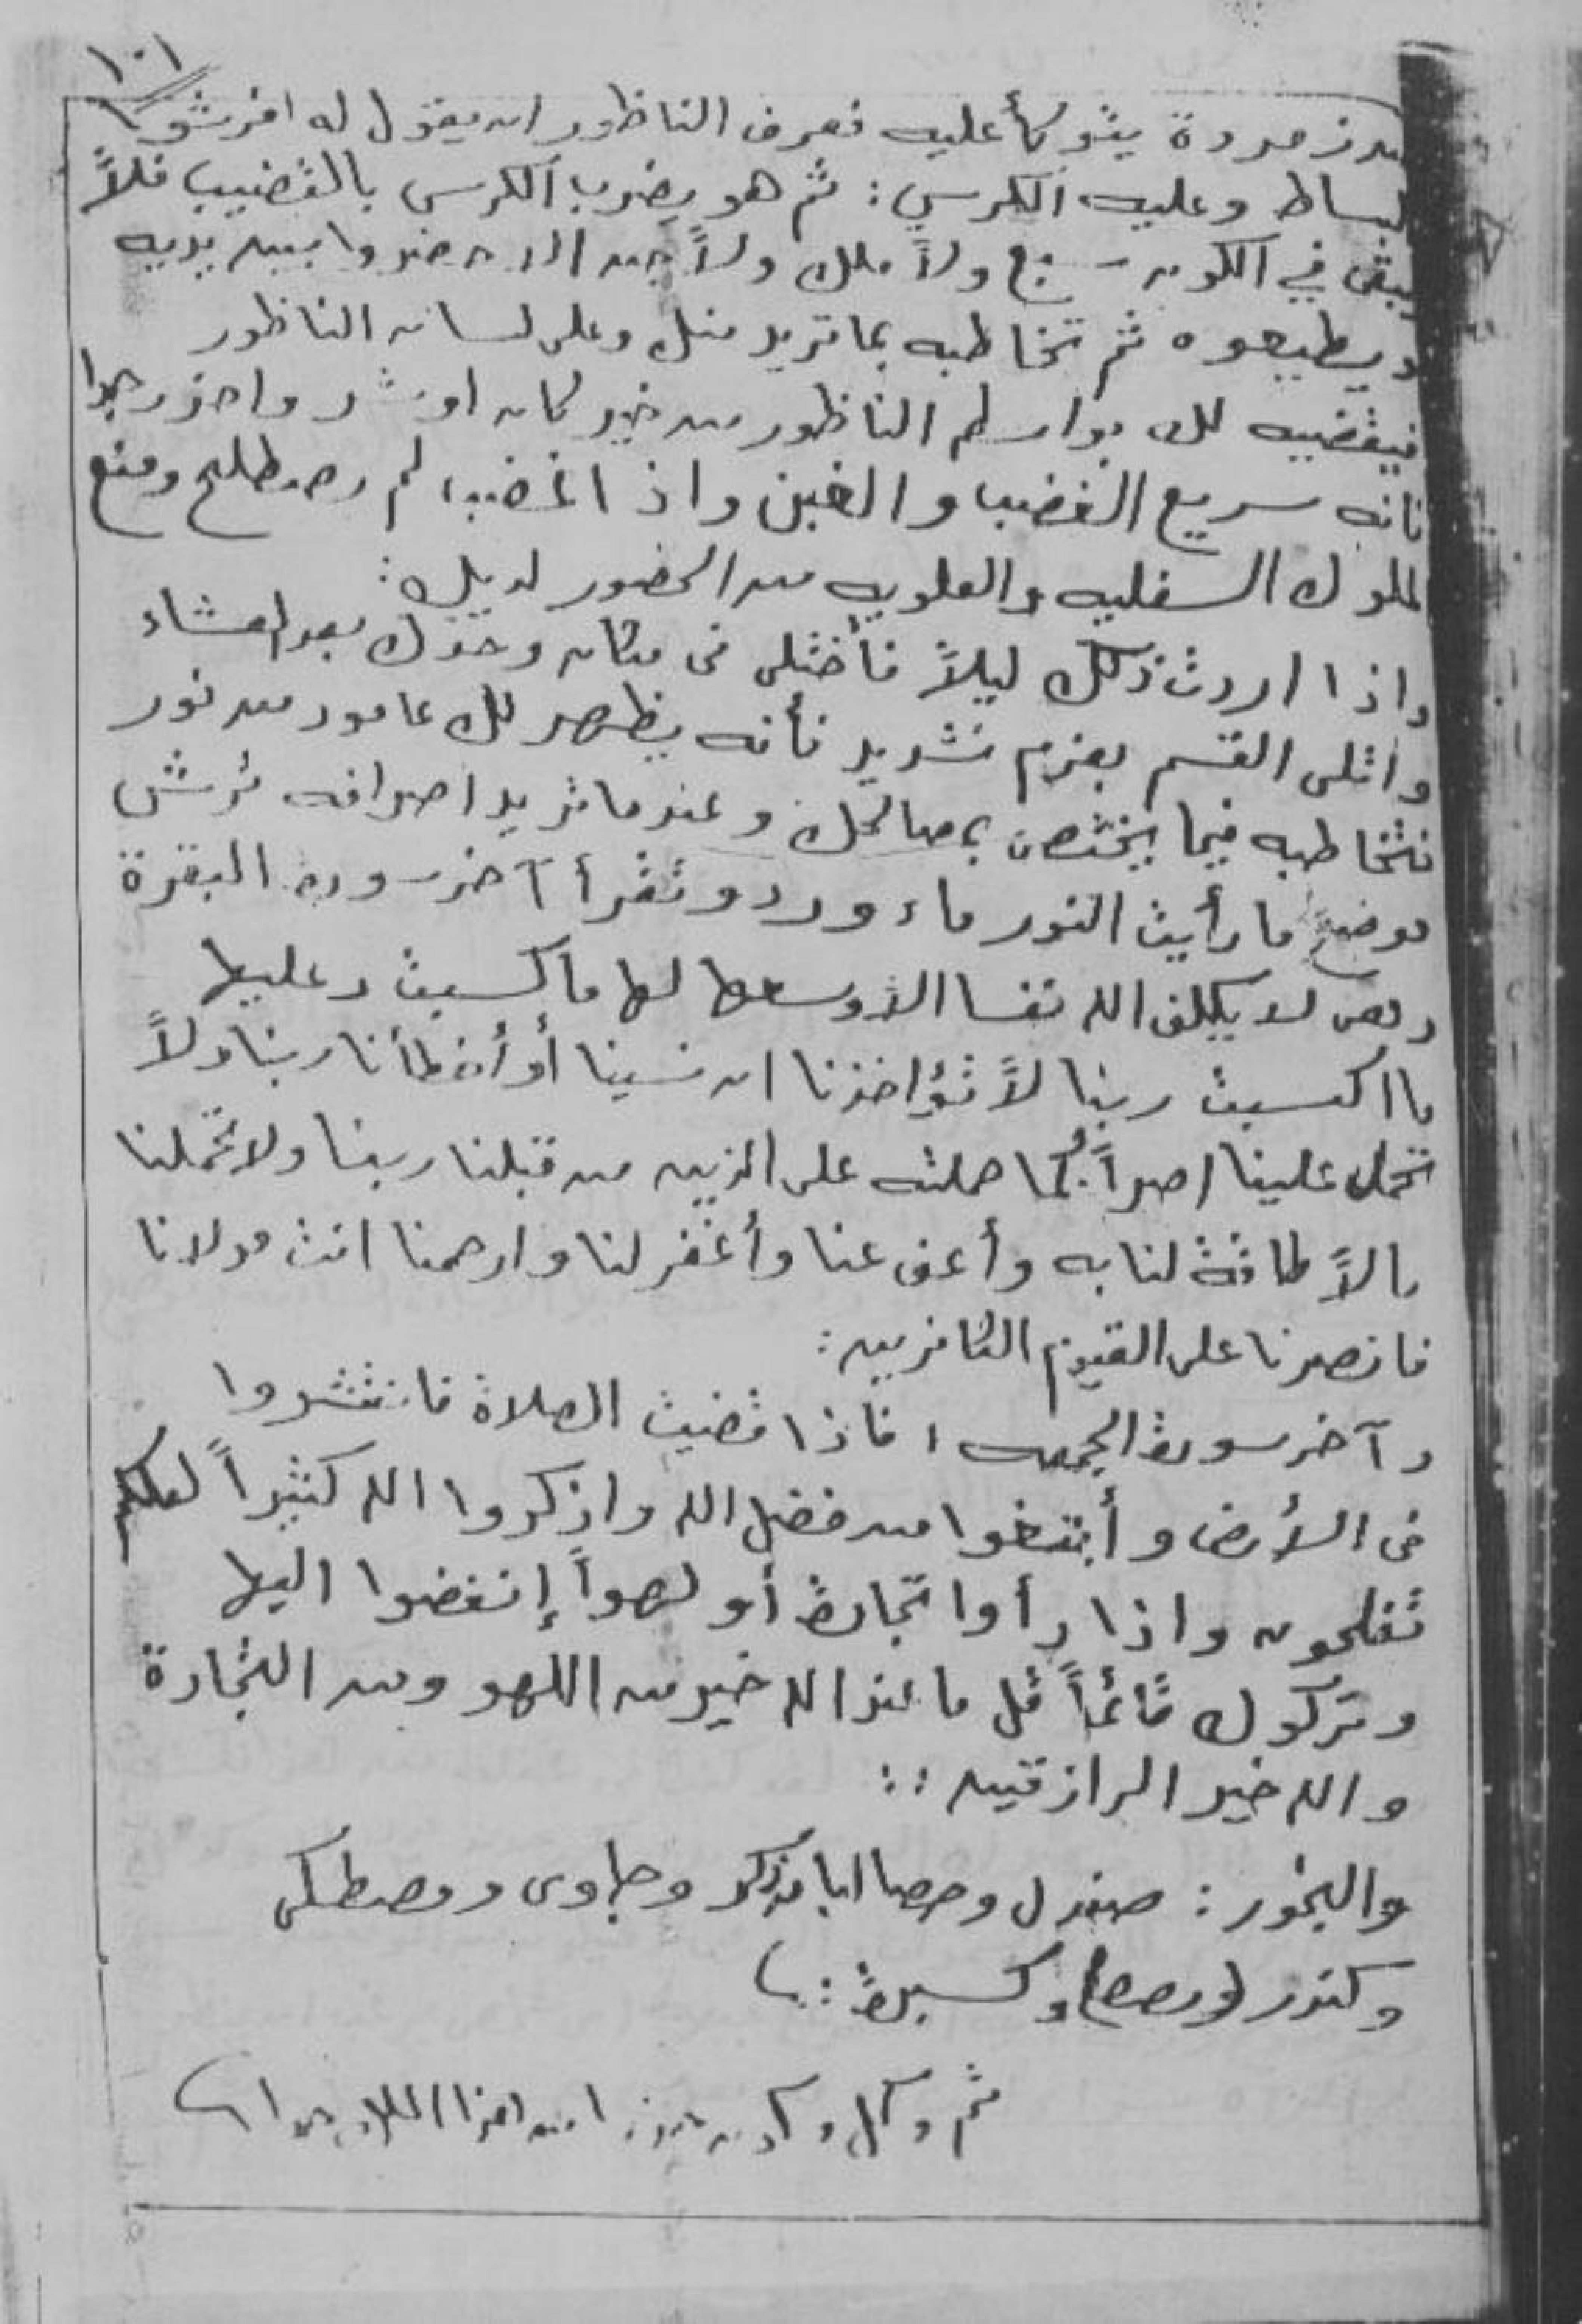 ١٠١
من زمردة يتوكأ عليه فعرف الناظور ان يقول له افرشوا
البساط وعليه الكرسي : ثم هو يضرب الكرسى بالقضيب فلاً
يبقى في الكون ولاً ملك ولاً جن الا حضروا بين يديه
ويطيعوه ثم تخاطبه بما تريد منك وعلى لسان الناظور
فيقضيه لك بواسطه الناظور من خير كان او شر واحذر جدا
فانه سريع الغضب و الغبن واذا غضب لم يصطلح ومنع
الملوك السفليه والعلويه من الحضور لديك :
واذا اردت ذلك ليلاً فأختلى فى مكان وحدك بعد العشاء
واتلى القسم بعزم شديد فأنه يظهر لك عامود من نور
فتخاطبه فيما يختص بمصالحك وعندما تريد اصرافه ترش
موضع ما رأيت النور ماء ورد وتقرأ آخر سورة البقرة
وهى لا يكلف الله نفسا الا وسعها لها ما كسبت وعليها
ما اكتسبت ربنا لاً تؤاخذنا ان نسينا أو أخطأنا ربنا ولاً
تحمل علينا اصراً كما حملته على الذين من قبلنا ربنا ولا تحملنا
مالاً طاقة لنا به وأعف عنا وأغفر لنا وارحمنا انت مولانا
فانصرنا على القوم الكافرين :
وآخر سورة الجمعه ، فاذا قضيت الصلاة فانتشروا
فى الأرض و أبتغوا من فضل الله واذكروا الله كثيراً لعلكم
تفلحون واذا رأوا تجارة أو لهواً إنفضوا اليها
وتركوك قائماً قل ما عند الله خير من اللهو ومن التجارة
والله خير الرازقين ::
والبخور : صندل وحصا لبان ذكر وجاوى ومصطكى
وكندر وكسبرة :.
ثم